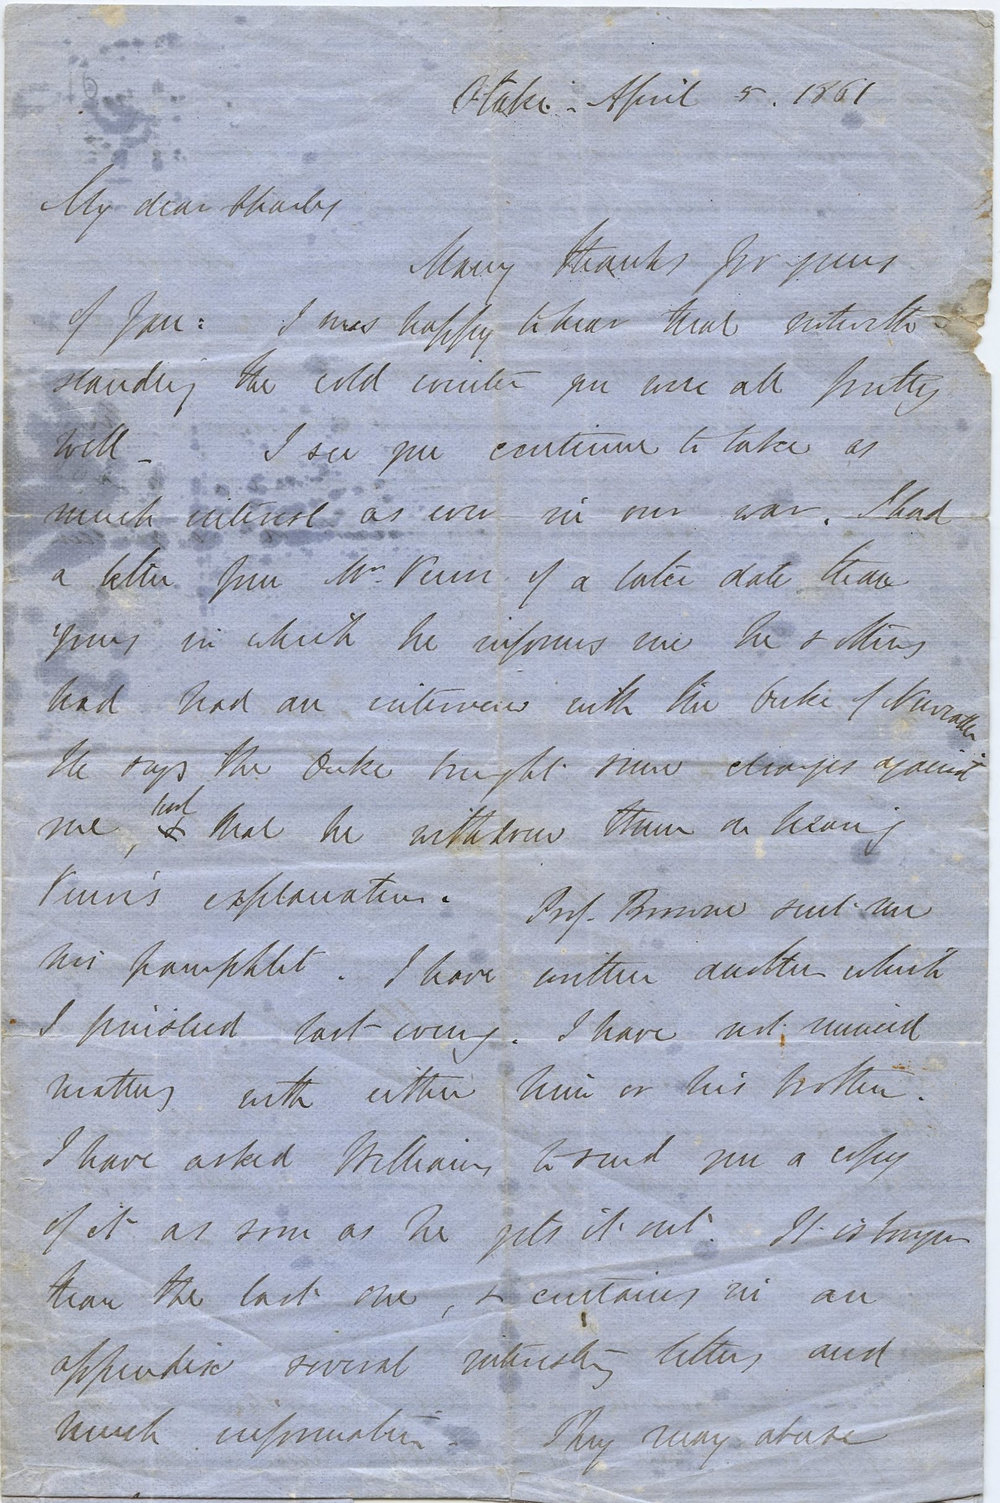 Otaki - April 5. 1861
My dear Charles
Many thanks for yours
of Jan: I was happy to hear that notwith-
standing the cold winter you were all pretty
well - I see you continue to take as
much interest as ever in our war. I had
a letter from Mr. Venn of a later date than
yours in which he informs me he & others
had had an interview with the Duke of Newcastle
He says the Duke brought some charges against
me, but that he withdrew them on hearing
Venn's explanation. Prof. Browne sent me
his pamphlet. I have written another which
I finished last eveng. I have not minced
matters with either him or his brother.
I have asked Williams to send you a copy
of it as soon as he gets it out. It is longer
than the last one, & contains in an
appendix several interesting letters and
much information - They may abuse